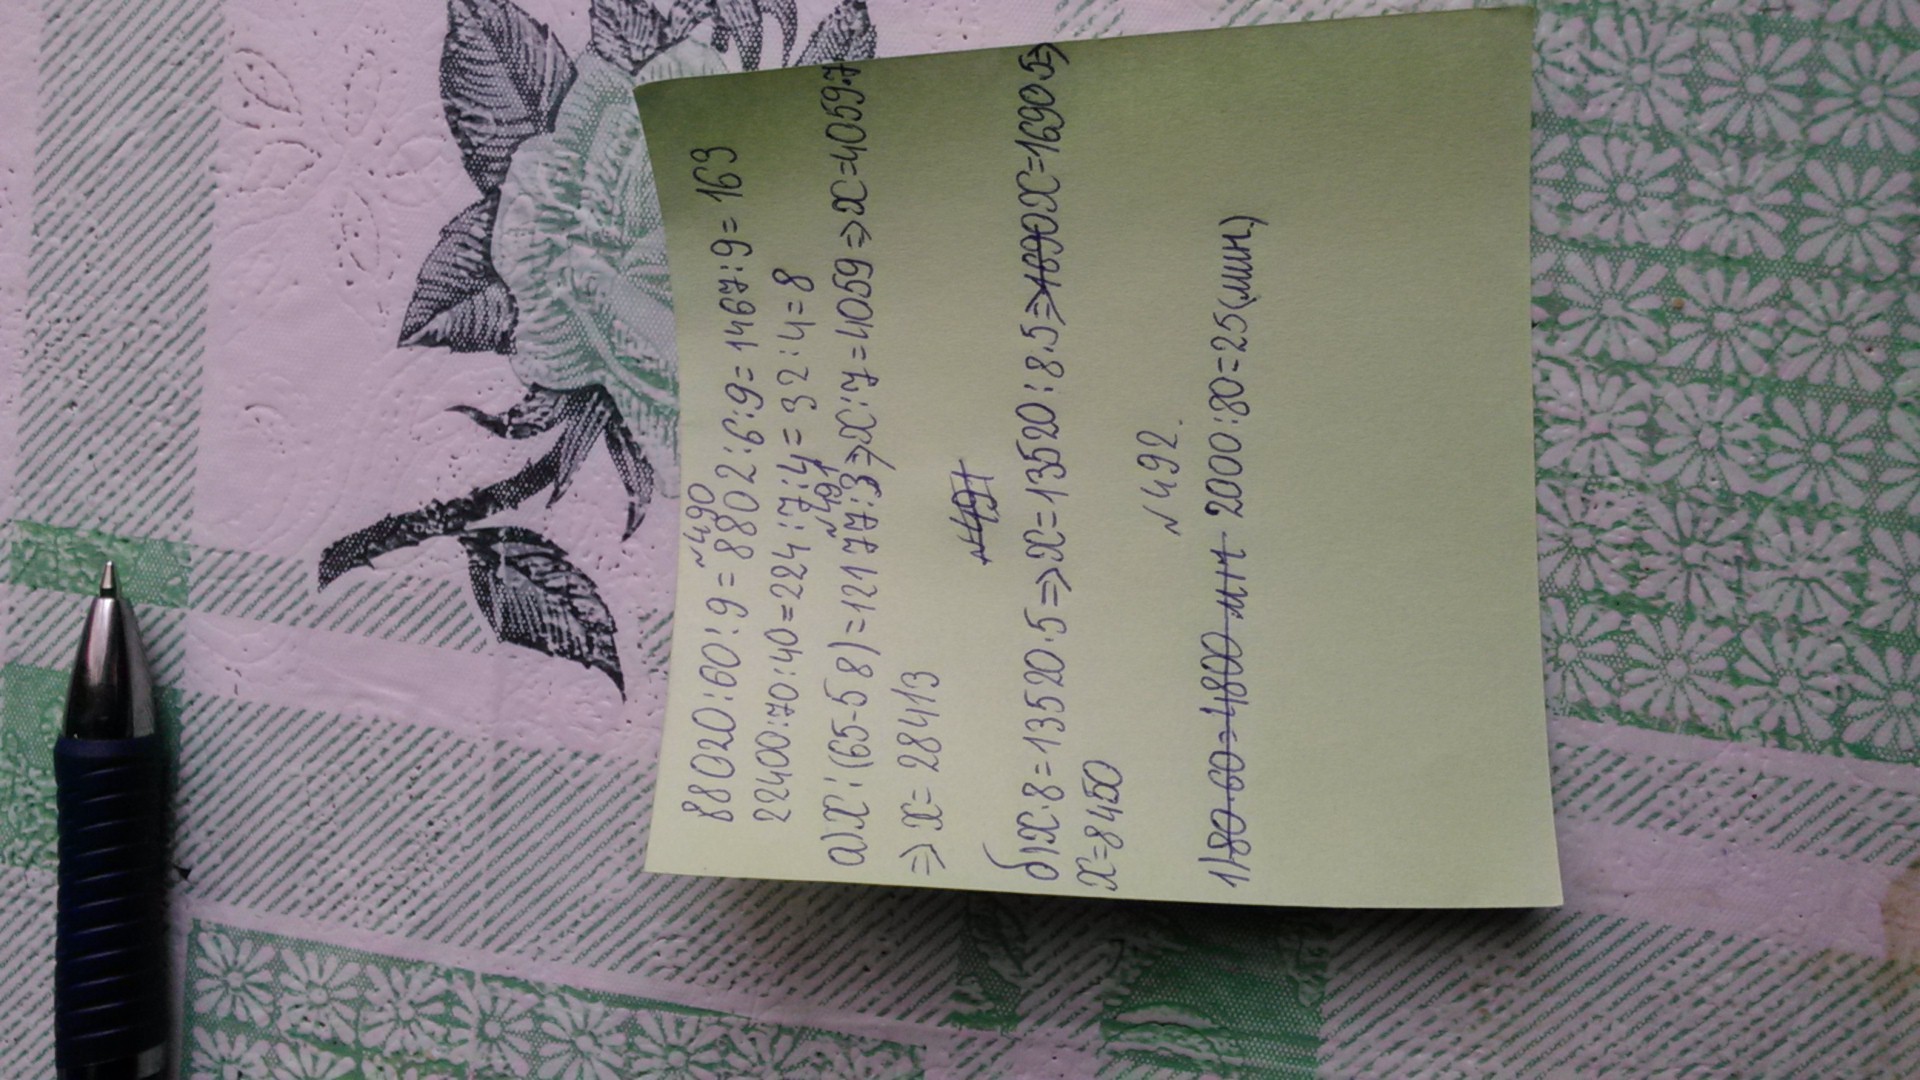 №490
88020:60:9=8802:6:9=1467:9=163
22400:70:40=224:7:4=32:4=8
№491
а)x:(65-58)=12177:3=>x:7=4059=>x=4059·7
=>x=28413
№491
б)x·8=13520·5=>x=13520:8·5=>1690x=1690·5=>
x=8450
№492.
1)80·60=4800 мин 2000:80=25(мин)